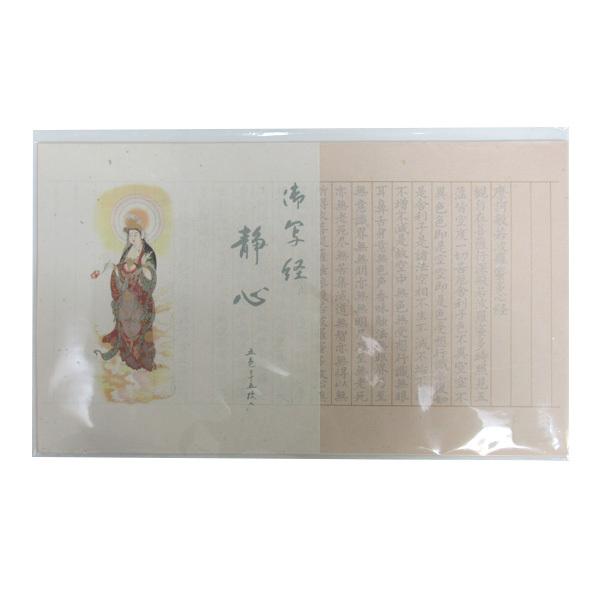 摩訶般若波羅蜜多心経
観自在菩薩行深般若波羅蜜多時照見五
蘊皆空度一切苦厄舎利子色不異空空不
異色色即是空空即是色受想行識亦復如
是舎利子是諸法空相不生不滅不垢不浄
不増不減是故空中無色無受想行識無眼
耳鼻舌身意無色声香味触法無眼界乃至
無意識界無無明亦無無明尽乃至無老死
亦無老死尽無苦集滅道無智亦無得以無
御写経
静心
五色十五枚入